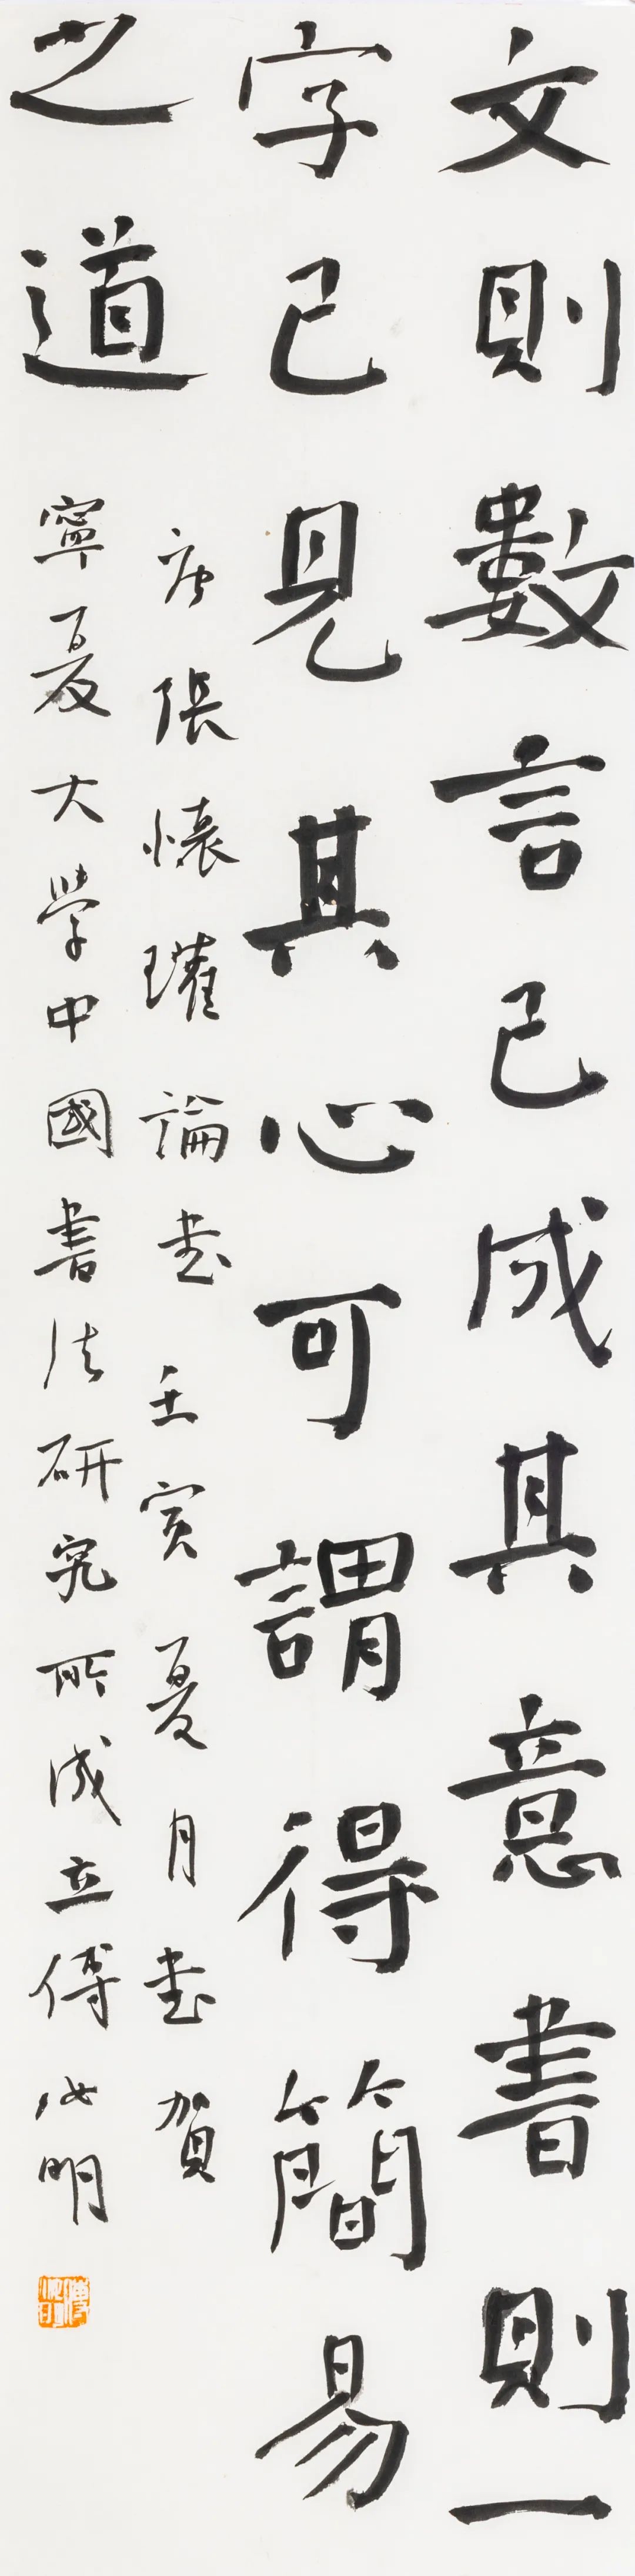 文則數言已成其意書則一
字已見其心可謂得簡易
之道
唐張懷瓘論書 壬寅夏月書賀
寧夏大學中國書法研究所成立 傅如明